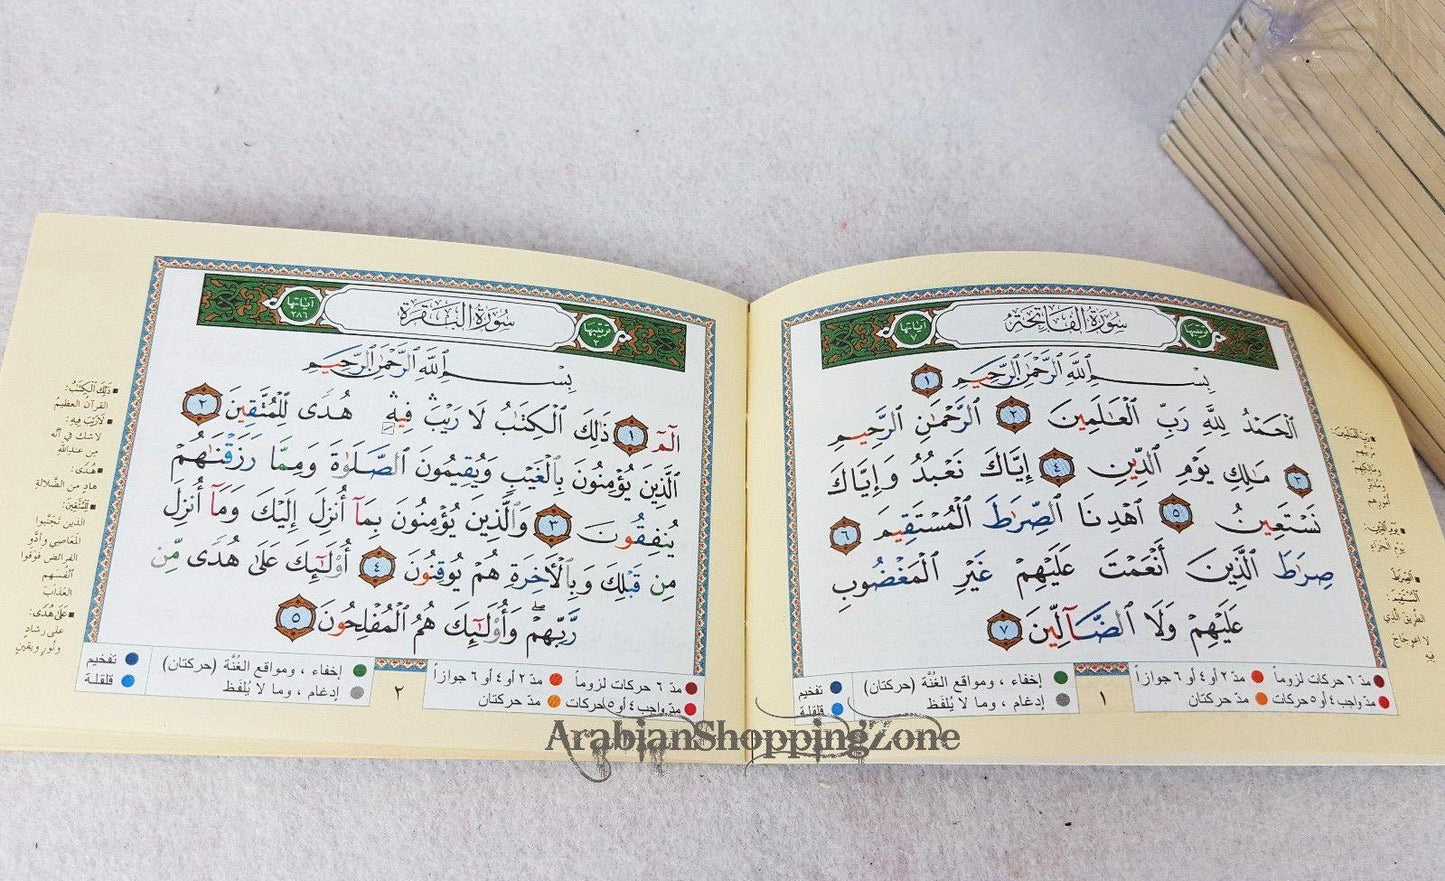 سورة الفاتحة
ترتيبها ١
آياتها ٧
بِسْمِ ٱللَّهِ ٱلرَّحْمَٰنِ ٱلرَّحِيمِ ١
ٱلْحَمْدُ لِلَّهِ رَبِّ ٱلْعَٰلَمِينَ ٢ ٱلرَّحْمَٰنِ ٱلرَّحِيمِ
٣ مَٰلِكِ يَوْمِ ٱلدِّينِ ٤ إِيَّاكَ نَعْبُدُ وَإِيَّاكَ
نَسْتَعِينُ ٥ ٱهْدِنَا ٱلصِّرَٰطَ ٱلْمُسْتَقِيمَ ٦
صِرَٰطَ ٱلَّذِينَ أَنْعَمْتَ عَلَيْهِمْ غَيْرِ ٱلْمَغْضُوبِ
عَلَيْهِمْ وَلَا ٱلضَّآلِّينَ ٧
رَبِّ الْعَالَمِينَ:
يَوْمِ الدِّينِ:
يوم الجزاء
الصِّرَاطَ
الْمُسْتَقِيمَ:
الطريق الذي
لا اعوجاج
فيه
مدّ ٦ حركات لزوماً مدّ ٢ أو ٤ أو ٦ جوازاً
مدّ واجب ٤ أو ٥ حركات مدّ حركتان
١
إخفاء ، ومواقع الغُنَّة (حركتان)
إدغام ، وما لا يُلفَظ
تفخيم
قلقلة
سورة البقرة
ترتيبها ٢
آياتها ٢٨٦
بِسْمِ ٱللَّهِ ٱلرَّحْمَٰنِ ٱلرَّحِيمِ
الٓمٓ ١ ذَٰلِكَ ٱلْكِتَٰبُ لَا رَيْبَ ۛ فِيهِ ۛ هُدًى لِّلْمُتَّقِينَ ٢
ٱلَّذِينَ يُؤْمِنُونَ بِٱلْغَيْبِ وَيُقِيمُونَ ٱلصَّلَوٰةَ وَمِمَّا رَزَقْنَٰهُمْ
يُنفِقُونَ ٣ وَٱلَّذِينَ يُؤْمِنُونَ بِمَآ أُنزِلَ إِلَيْكَ وَمَآ أُنزِلَ
مِن قَبْلِكَ وَبِٱلْءَاخِرَةِ هُمْ يُوقِنُونَ ٤ أُو۟لَٰٓئِكَ عَلَىٰ هُدًى مِّن
رَّبِّهِمْ ۖ وَأُو۟لَٰٓئِكَ هُمُ ٱلْمُفْلِحُونَ ٥
ذَلِكَ الْكِتَبُ:
القرآن العظيم
لَا رَيْبَ فِيهِ:
لا شك في أنّه
من عند الله
هُدًى:
هادٍ من الضّلالة
لِلْمُتَّقِينَ:
الذين تجنّبوا
المعاصي وأدّوا
الفرائض فوَقَوا
أنفسهم
العذاب
عَلَى هُدًى:
على رشادٍ
ونورٍ ويقينٍ
مدّ ٦ حركات لزوماً مدّ ٢ أو ٤ أو ٦ جوازاً
مدّ واجب ٤ أو ٥ حركات مدّ حركتان
٢
إخفاء ، ومواقع الغُنَّة (حركتان)
إدغام ، وما لا يُلفَظ
تفخيم
قلقلة
ArabianShoppingZone